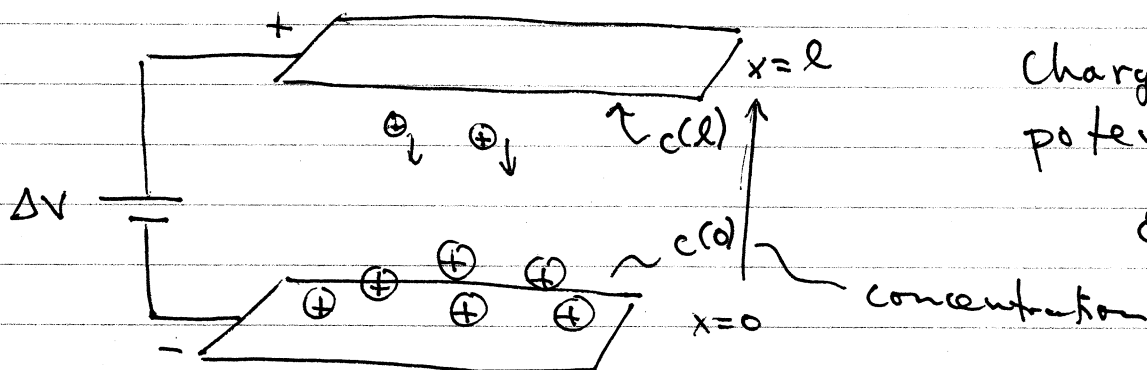 +
x = l
Charg
c(l)
poter
⊕ ⊕
ΔV
c(0)
⊕ ⊕ ⊕
concentration
⊕ ⊕ ⊕
x=0
−